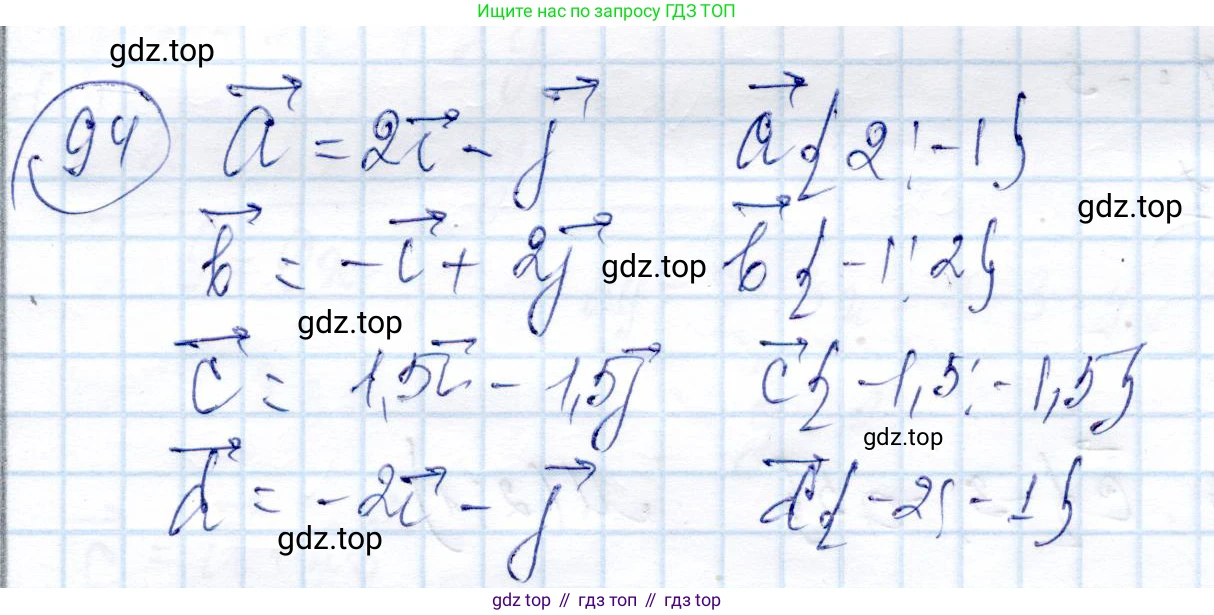 Ищите нас по запросу ГДЗ ТОП
gdz.top
94 a⃗ = 2i⃗ - j⃗ a⃗{2; -1}
gdz.top
b⃗ = -i⃗ + 2j⃗ gdz.top b⃗{-1; 2}
gdz.top
c⃗ = 1,5i⃗ - 1,5j⃗ c⃗{-1,5; -1,5}
gdz.top
d⃗ = -2i⃗ - j⃗ d⃗{-2; -1}
gdz.top
gdz top // гдз топ // gdz top